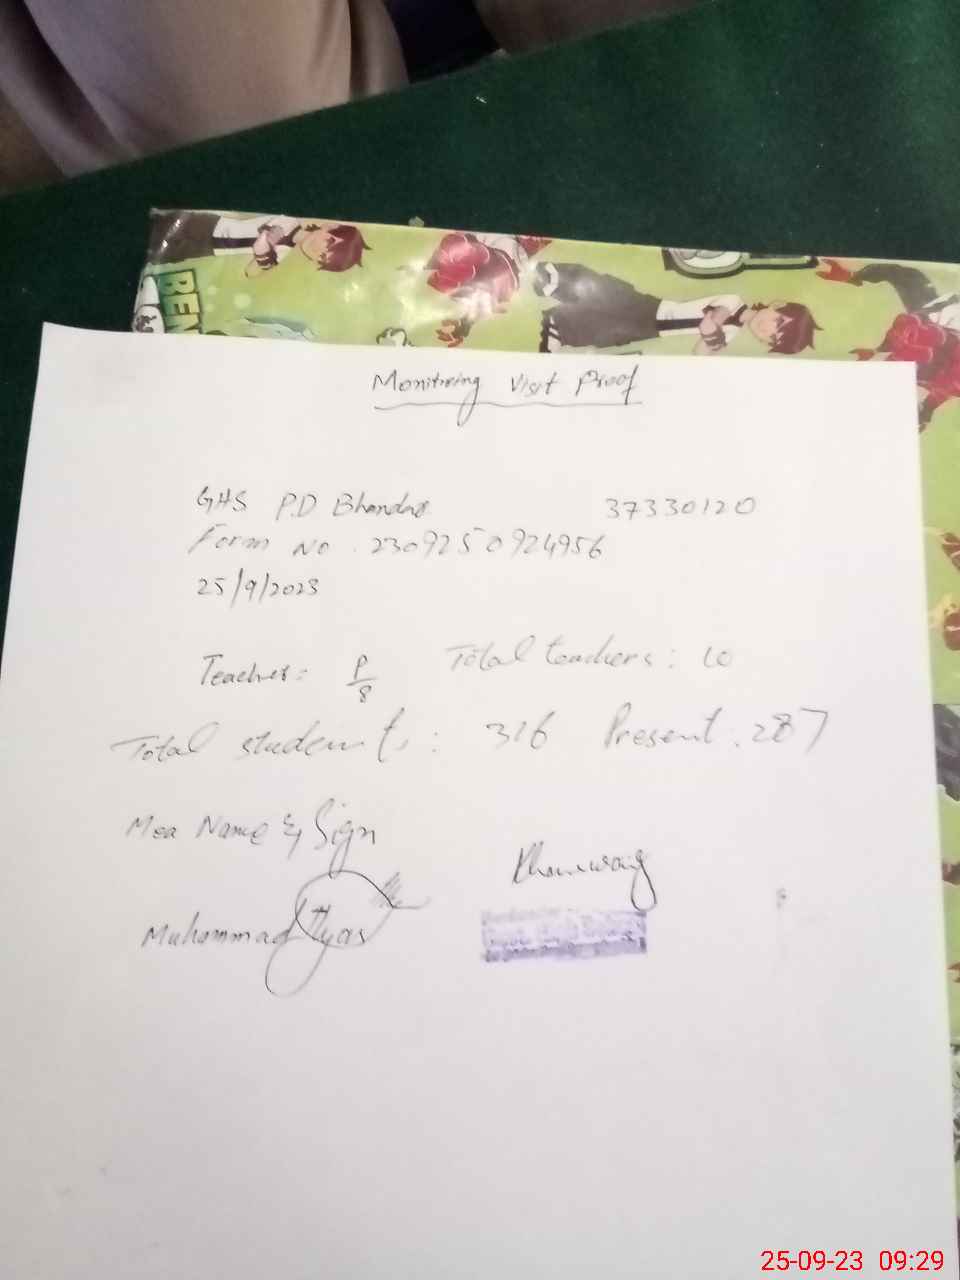 BEN
Monitoring Visit Proof
GHS P.D Bhandar 37330120
Form No . 2309250924956
25/9/2023
Teachers: P/8 Total teachers: 10
Total students: 316 Present: 287
Mea Name & Sign
Muhammad Ilyas
25-09-23 09:29